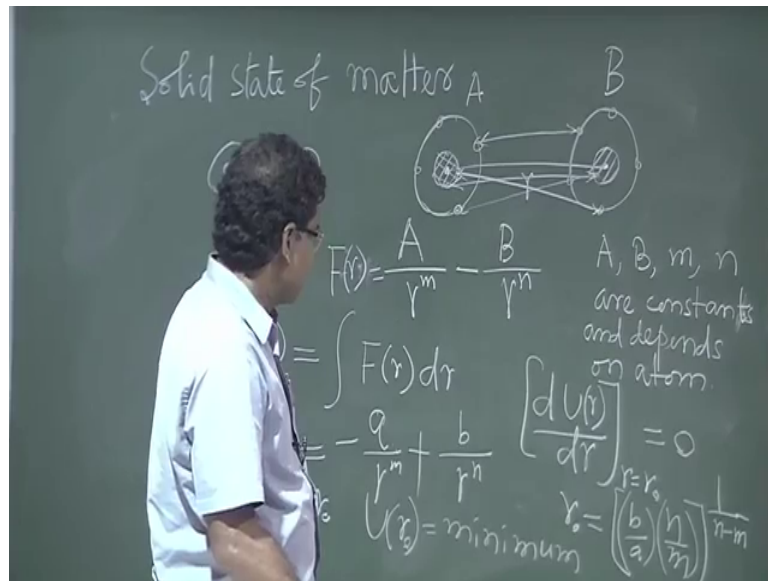 Solid state of matter
A B
r
F(r) = A/r^m - B/r^n
A, B, m, n
are constants
and depends
on atom.
) = ∫ F(r) dr
= -a/r^m + b/r^n
[dU(r)/dr]_{r=r₀} = 0
U(r₀) = minimum
r₀ = [(b/a)(n/m)]^{1/(n-m)}